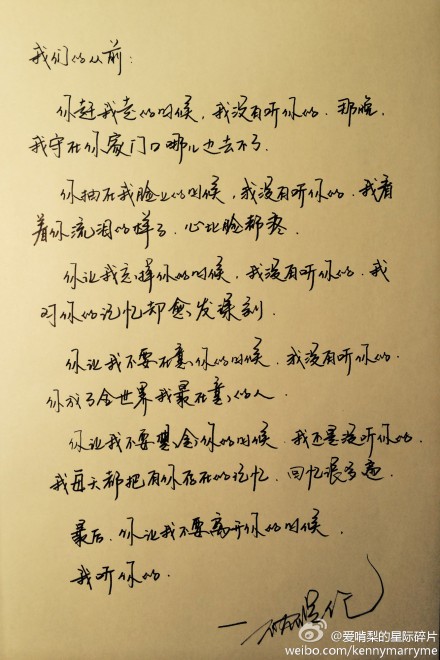 我们的从前：
你赶我走的时候，我没有听你的．那晚．
我守在你家门口哪儿也去不了．
你抽在我脸上的时候，我没有听你的．我看
着你流泪的样子．心比脸都疼．
你让我忘掉你的时候．我没有听你的．我
对你的记忆却愈发深刻．
你让我不要在意你的时候．我没有听你的．
你成了全世界我最在意的人．
你让我不要想念你的时候．我还是没听你的．
我每天都把有你存在的记忆．回忆很多遍．
最后．你让我不要离开你的时候．
我听你的．
@爱啃梨的星际碎片
weibo.com/kennymarryme